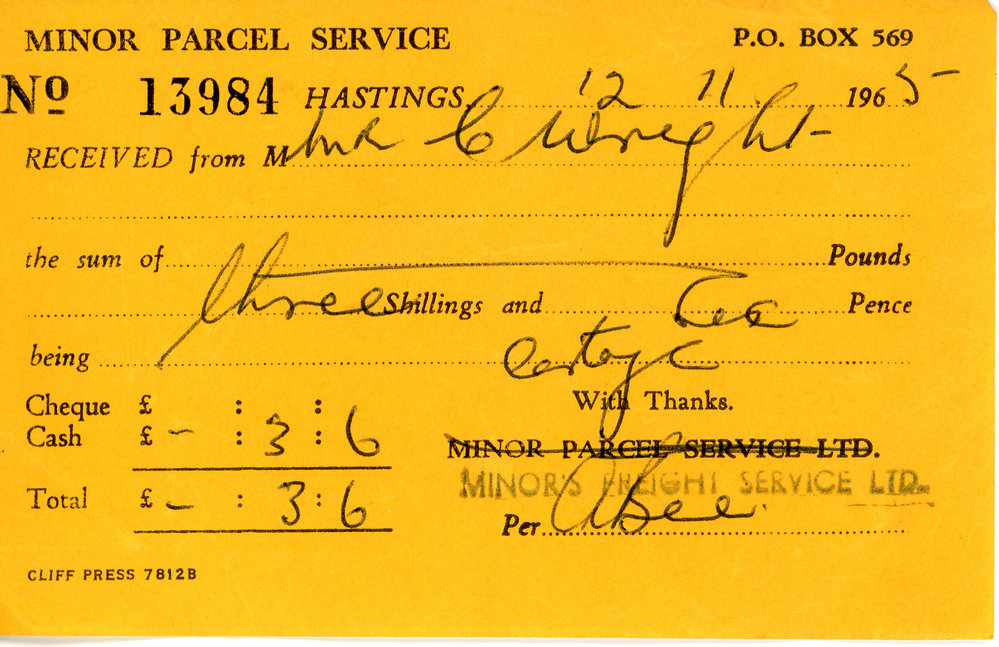 MINOR PARCEL SERVICE P.O. BOX 569
No 13984 HASTINGS 12 11 1965
RECEIVED from M Mr C Wright
the sum of Pounds
three Shillings and Six Pence
being Cartage
Cheque £ : : With Thanks.
Cash £ - : 3 : 6 MINOR PARCEL SERVICE LTD.
MINOR'S FREIGHT SERVICE LTD.
Total £ - : 3 : 6
Per
CLIFF PRESS 7812B